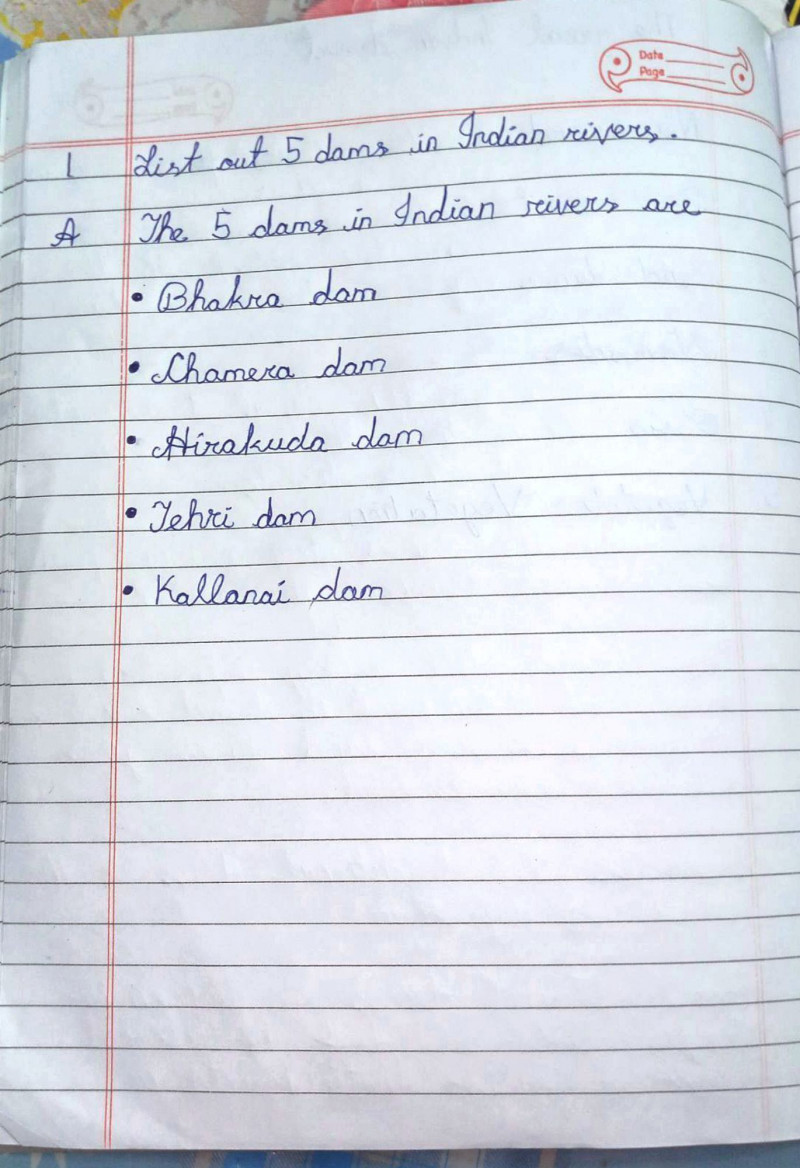 Date
Page
1 List out 5 dams in Indian rivers.
A The 5 dams in Indian rivers are
• Bhakra dam
• Chamera dam
• Hirakuda dam
• Tehri dam
• Kallanai dam